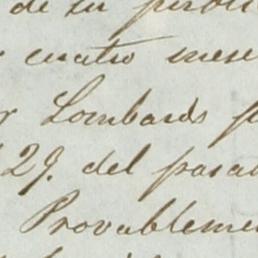 de su
cuatro mese
r Lombards p
29. del pasa
Provableme